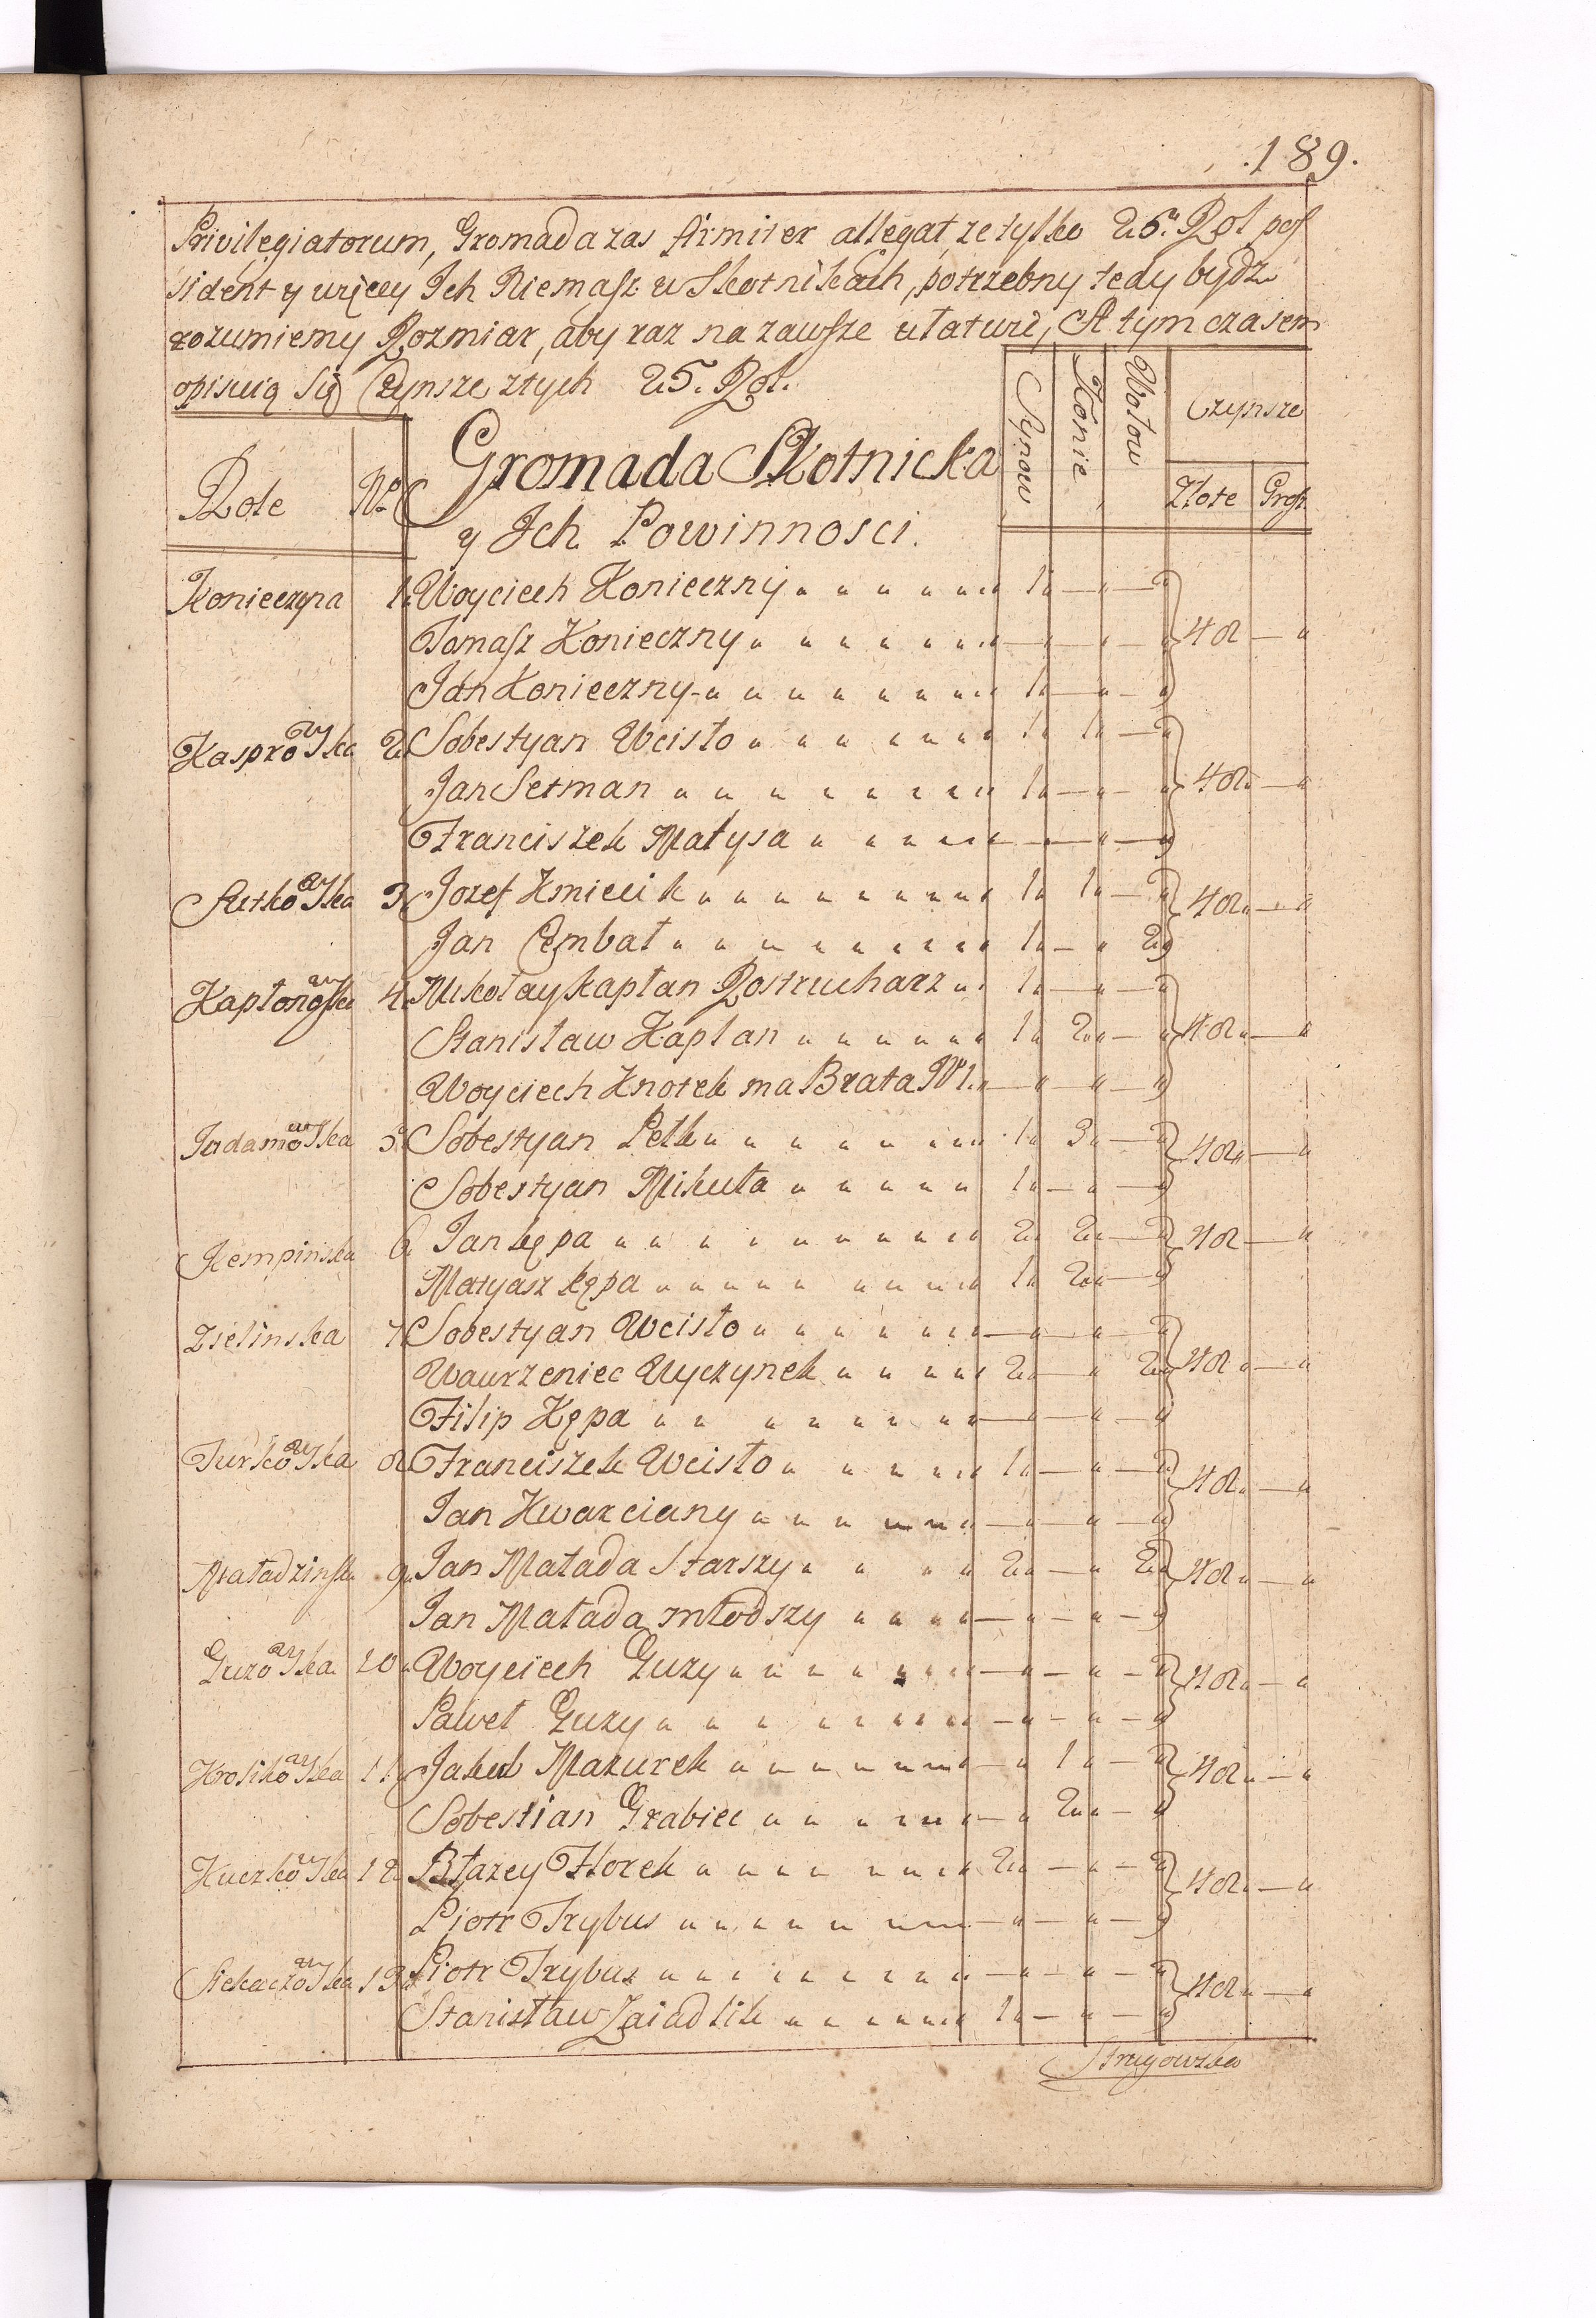 .189.
Privilegiatorum, Gromada zas firmiter allegat, ze tylko 25. Rol pos
sident y więcey Ich Niemasz w Skotnikach, potrzebny tedy bydz
rozumiemy Rozmiar, aby raz na zawsze ułatwić, A tym czasem
opisuią się Czynsze z tych 25. Rol.
Role No Gromada Skotnicka Synow Konie Wołow Czynsze
y Ich Powinnosci. Złote Grosz
Konieczna 1 Woyciech Konieczny 1 48
Tomasz Konieczny
Jan Konieczny 1
Kasprowska 2 Sobestyan Weisło 1 1 48
Jan Setman 1
Franciszek Matysa
3 Jozef Kmiecik 1 1 48
Jan Cembat 1 2
Kaptonowska 4 Mikołay Kapłan Rostrucharz 1 48
Stanisław Kapłan 1 2
Woyciech Knotek ma Brata No 1.
Jadamowska 5 Sobestyan Petk 1 3 48
Sobestyan Mikuła 1
Kempinska 6 Jan Kępa 2 2 48
Matyasz Kępa 1 2
Zielinska 7 Sobestyan Weisło 48
Wawrzeniec Wyczynek 2 2
Filip Kępa
Turkowska 8 Franciszek Weisło 1 48
Jan Kwarciany
Maładzinska 9 Jan Małada Starszy 2 2 48
Jan Małada młodszy
Guzowska 10 Woyciech Guzy 48
Paweł Guzy
Krolikowska 11 Jakub Mazurek 1 48
Sobestian Grabiec 2
Kuczkowska 12 Błazey Florek 2 48
Piotr Trybus
13 Piotr Trybus 48
Stanisław Zaiadlik 1
Strugowska